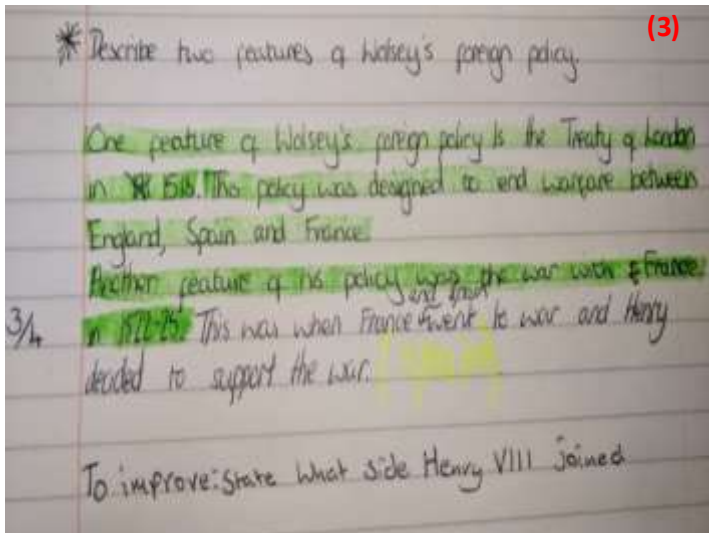 (3)
* Describe two features of Wolsey's foreign policy.
One feature of Wolsey's foreign policy is the Treaty of London
in 1518. This policy was designed to end warfare between
England, Spain and France.
Another feature of his policy was the war with France
in 1522-25. This was when France and Spain went to war and Henry
3/4
decided to support the war. (Spain)
To improve: State what side Henry VIII joined